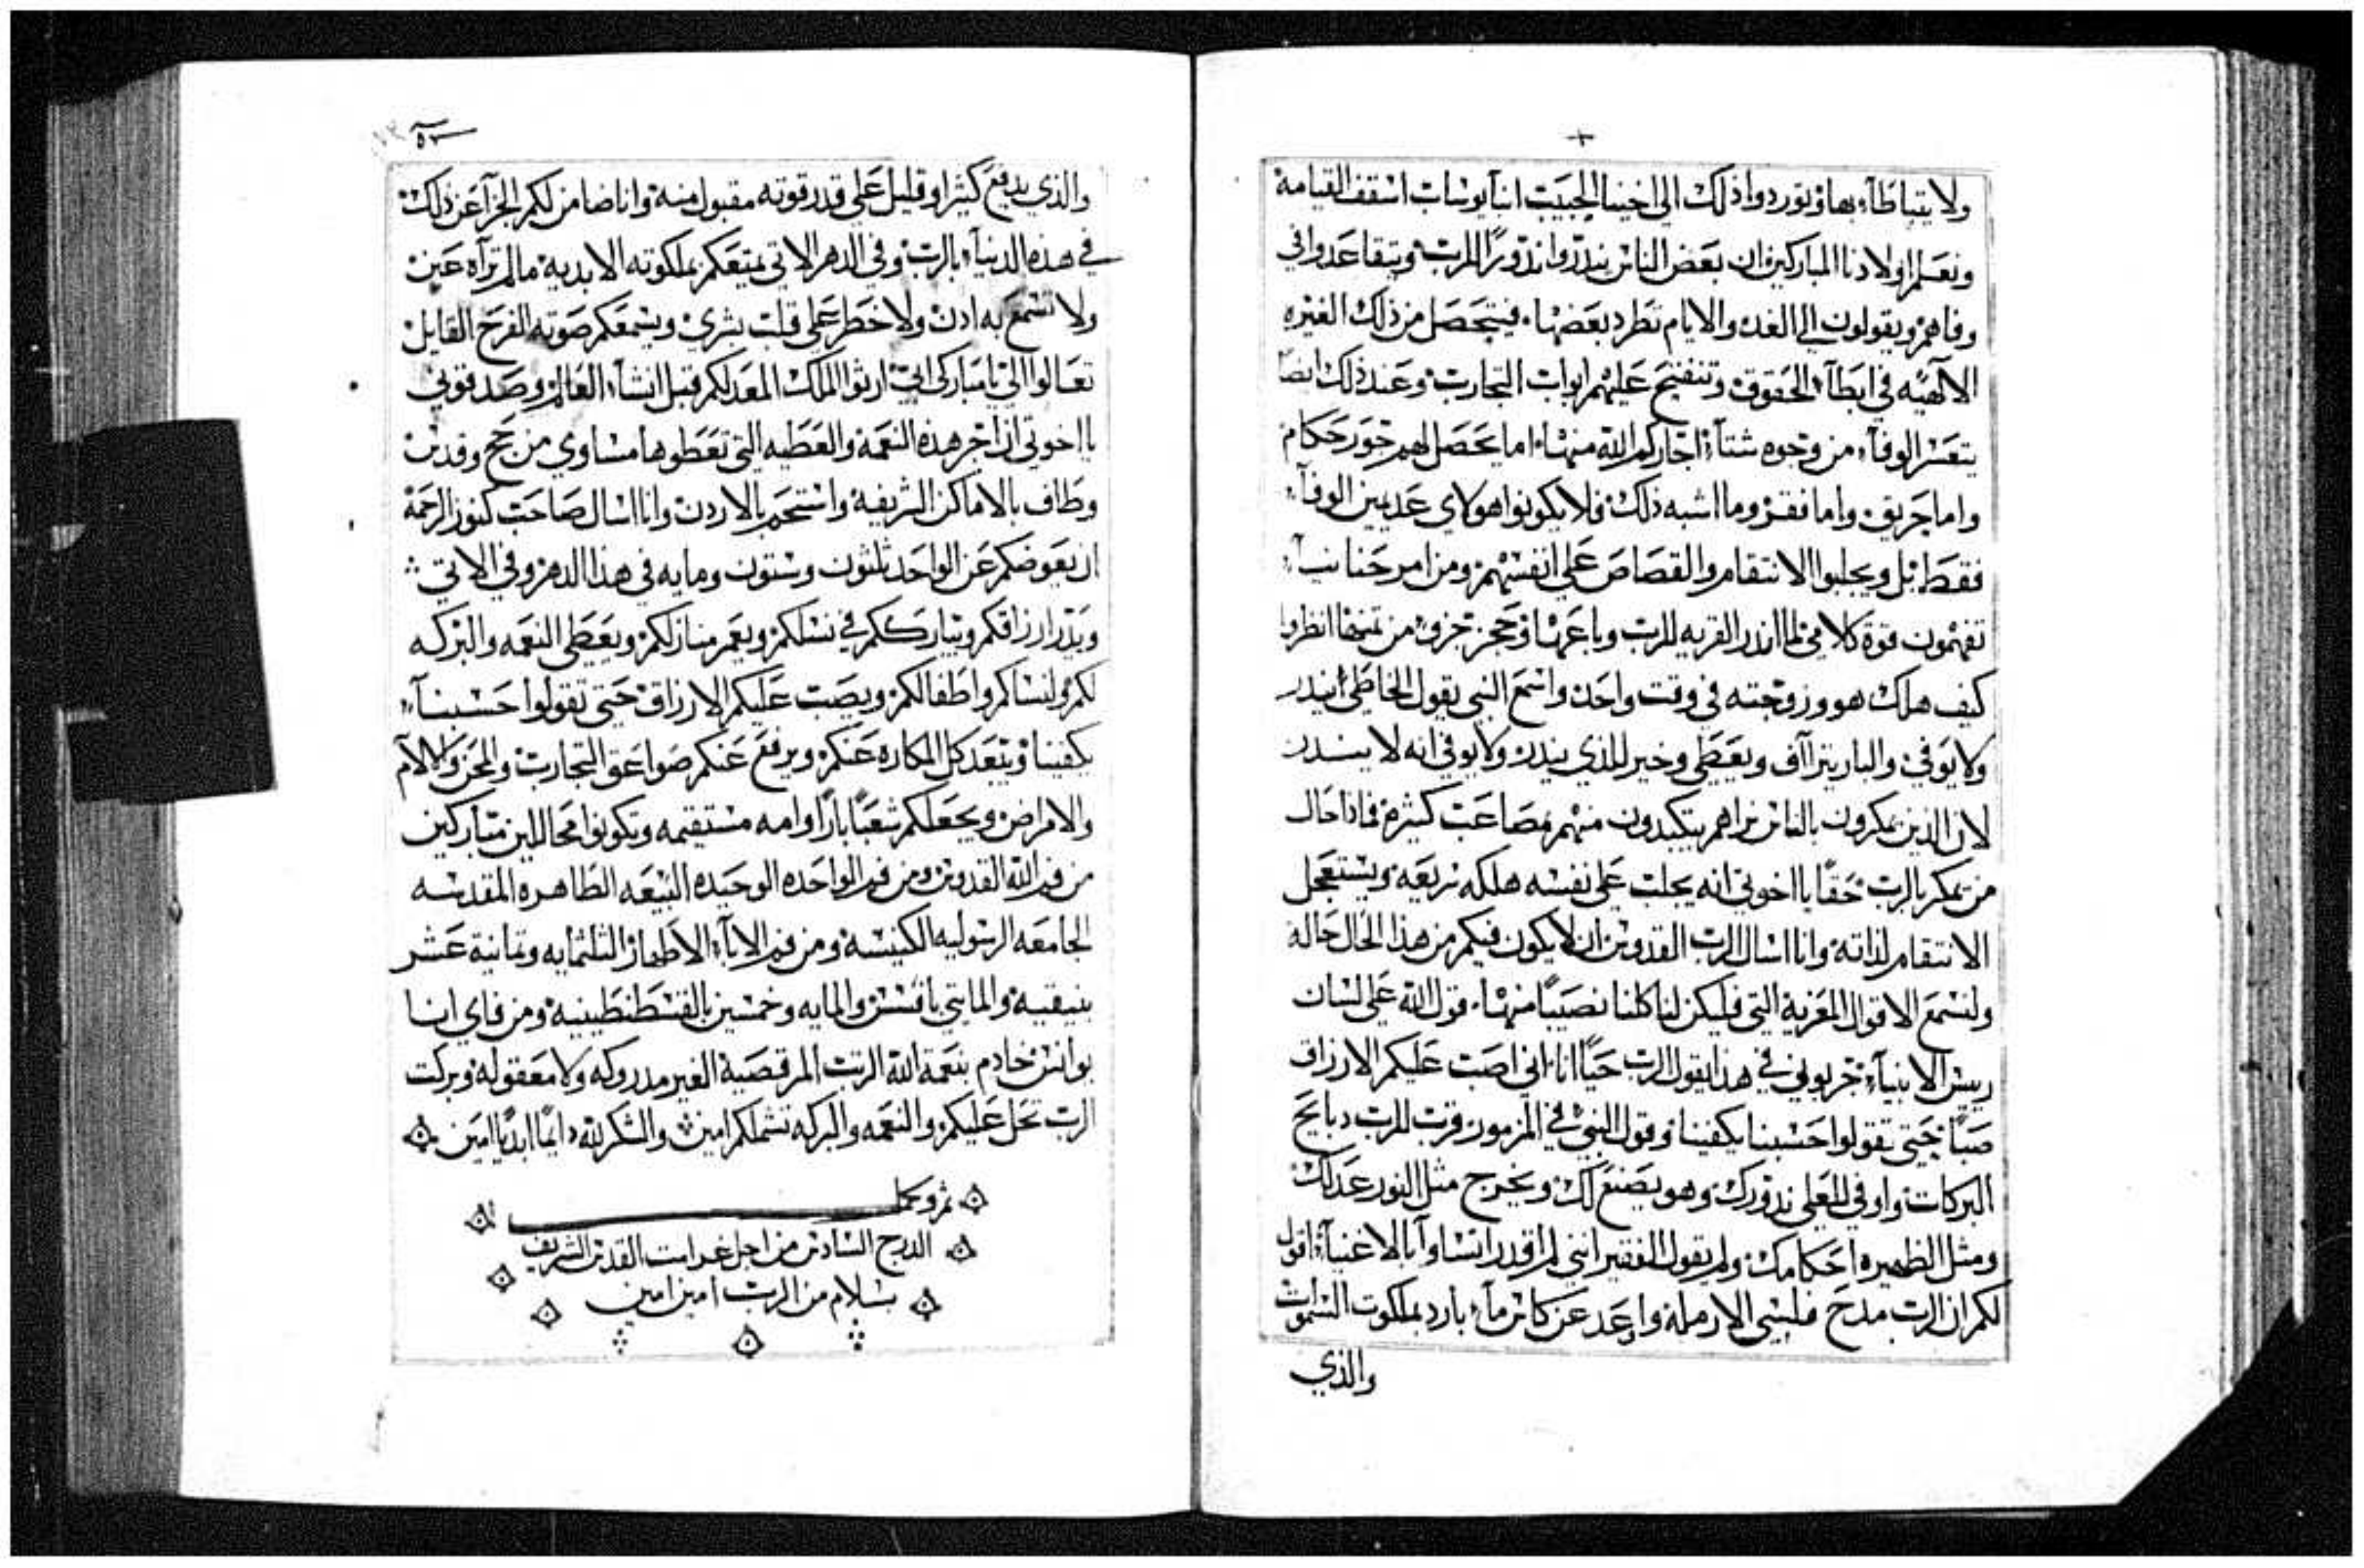 ولا يتباطآء بها وتوردوا ذلك الى اخينا الحبيب انبا يوساب اسقف القيامة
ونعلم اولادنا المباركين ان بعض الناس يندروا ندورًا للرب ويتقاعدوا في
وفاهم ويقولون الى الغد والايام تطرد بعضها فيتحصل من ذلك الغيره
الالهيه في ابطآء الحقوق وتنفتح عليهم ابواب التجارب وعند ذلك ايضا
يتعسر الوفآء من وجوه شتآء اجاركم الله منها اما يحصل لهم جور حكام
واما حريق واما فقر وما اشبه ذلك فلا يكونوا هولاي عديمين الوفآء
فقط بل ويجلبوا الانتقام والقصاص على انفسهم ومن امر حنانيآء
تفهمون قوة كلامي لما اندر القريه للرب وباعها وحجز جزو من تمنها انظروا
كيف هلك هو وزوجته في وقت واحد واسمع النبي يقول الخاطي يندر
ولا يوفي والبار يتراآف ويعطي وخير للذي يندر ولا يوفي انه لا يندر
لان الذين يمكرون بالناس نراهم يتكبدون منهم مصاعب كثيره فاذا حال
من يمكر بالرب حقًا يا اخوتي انه يجلب على نفسه هلكه سريعه ويستعجل
الانتقام لذاته وانا اسال الرب القدوس ان لا يكون فيكم من هذا الحال حاله
ولنسمع الاقوال المعزية التي فليكن لنا كلنا نصيبًا منها قول الله على لسان
ريس الانبيآء جربوني في هذا يقول الرب حيًا انا اني اصب عليكم الارزاق
صبًا حتى تقولوا حسبنا يكفينا وقول النبي في المزمور قرب للرب دبايح
البركات واوفي للعلي ندورك وهو يصنع لك ويخرج مثل النور عدلك
ومثل الظهيره احكامك ولم يقول الفقير انني لم اقدر اتساوا بالاغنيآء اقول
لكم ان الرب مدح فلسي الارمله واوعد عن كاس مآء بارد بملكوت السموات
والذي
٥٣
والذي يدفع كثيرا وقليل على قدر قوته مقبول منه وانا ضامن لكم الجزآ عن ذلك
في هذه الدنيآء بالرب وفي الدهر الاتي يمتعكم بملكوته الابديه ما لم تراه عين
ولا تسمع به ادن ولا خطر على قلب بشري ويسمعكم صوته الفرح القايل
تعالوا اليّ يا مباركي ابي ارثوا الملك المعد لكم قبل انشآء العالم وصدقوني
يا اخوتي ان اجر هذه النعمه والعطيه التي تعطوها مساوي من حج وقدس
وطاف بالاماكن الشريفه واستحم بالاردن وانا اسال صاحب كنوز الرحمة
ان يعوضكم عن الواحد ثلثون وستون ومايه في هذا الدهر وفي الاتي
ويدر ارزاقكم ويبارككم في نسلكم ويعمر منازلكم ويعطي النعمه والبركه
لكم ولنساكم واطفالكم ويصب عليكم الارزاق حتى تقولوا حسبنآء
يكفينا ويبعد كل المكاره عنكم ويرفع عنكم صواعق التجارب والمحن والالام
والامراض ويجعلكم شعبًا بارًا وامه مستقيمه وتكونوا محاللين متباركين
من فم الله القدوس ومن فم الواحده الوحيده البيعه الطاهره المقدسه
الجامعه الرسوليه الكنيسه ومن فم الابآء الاطهار الثلثمايه وثمانية عشر
بنيقيه والمايتي بافسس والمايه وخمسين بالقسطنطينيه ومن فاي انا
يوانس خادم بنعمة الله الرتب المرقصية الغير مدروكه ولا معقوله وبركت
الرب تحل عليكم والنعمه والبركه تشملكم امين والشكر لله دايمًا ابديًا امين
تم وكمل
الدرج السادس من اجل غرامت القدس الشريف
بسلام من الرب امين امين